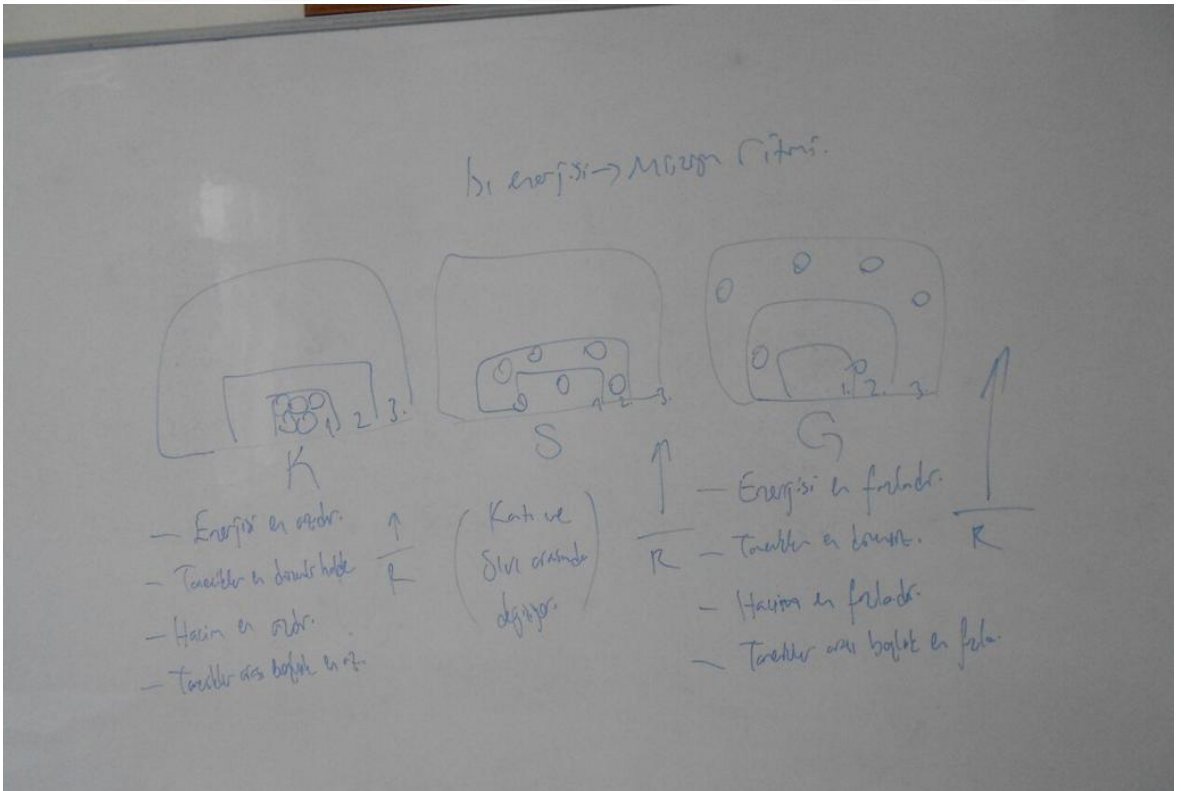 Isı enerjisi → Müziğin ritmi.
1. 2. 3.
1. 2. 3.
1. 2. 3.
K
S
G
— Enerjisi en azdır.
— Tanecikler en düzenli halde
— Hacim en azdır.
— Tanecikler arası boşluk en az.
R
(Katı ve
Sıvı arasında
değişiyor.)
R
— Enerjisi en fazladır.
— Tanecikler en düzensiz.
— Hacim en fazladır.
— Tanecikler arası boşluk en fazla.
R